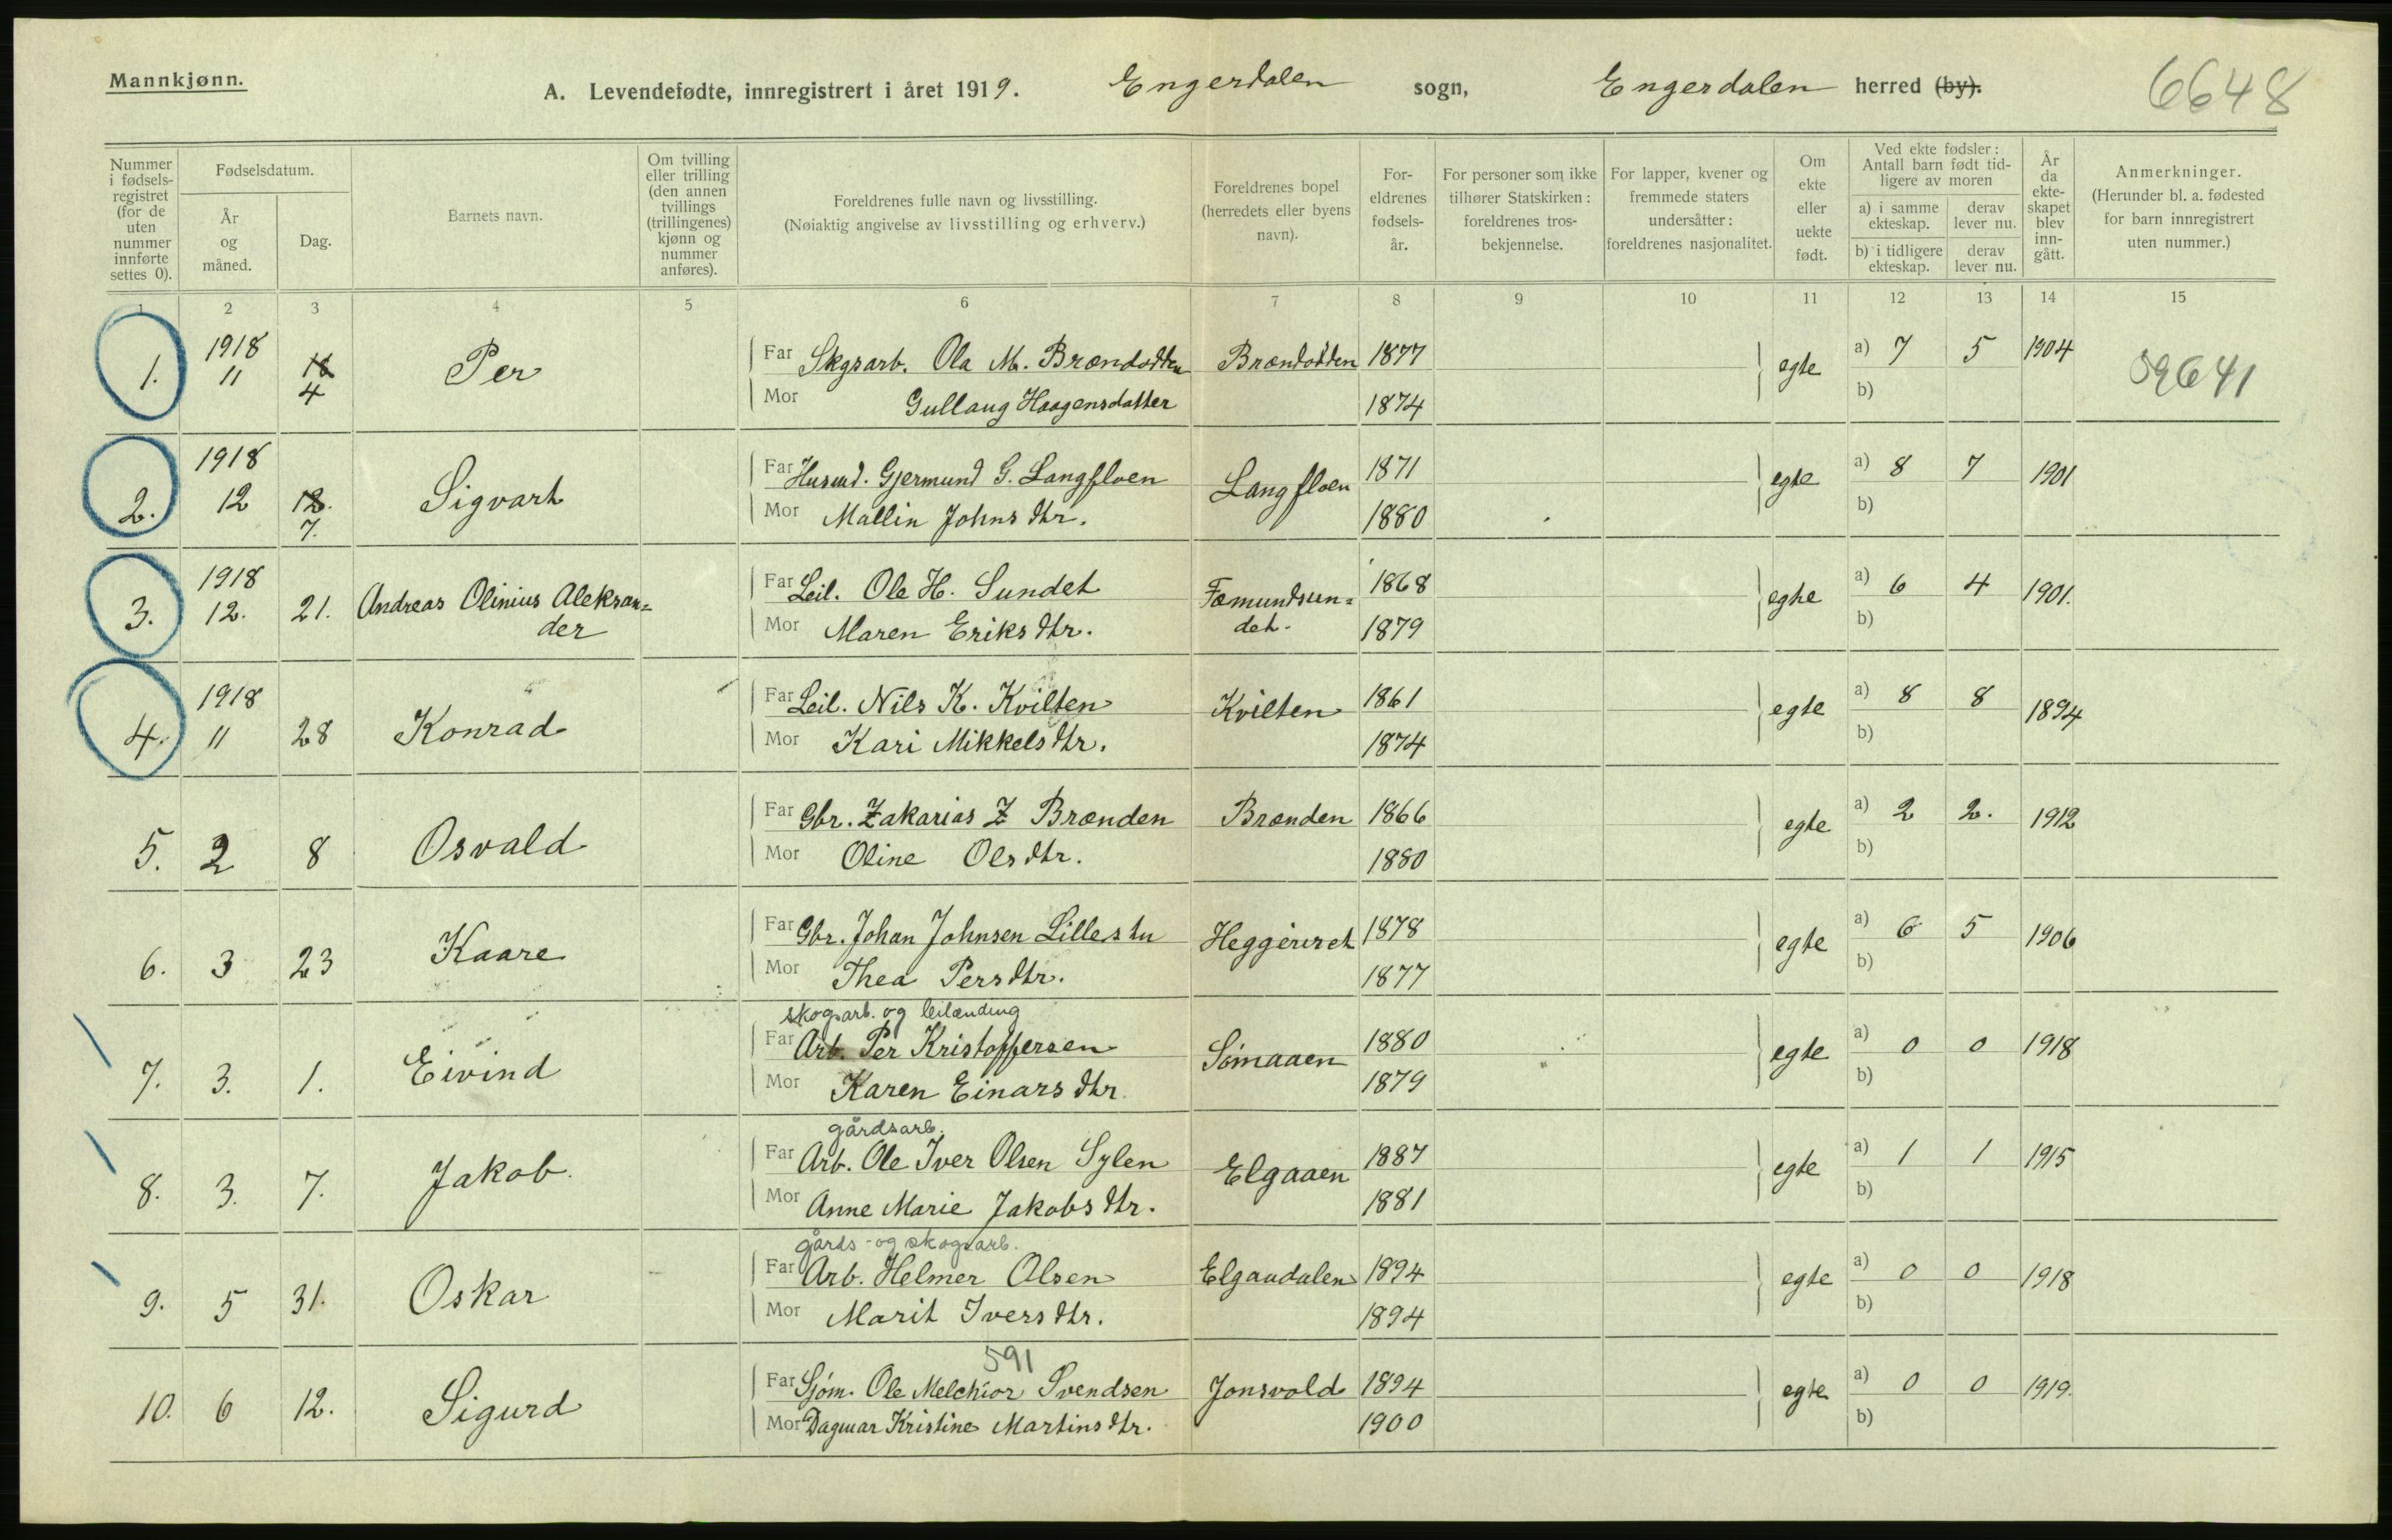 Mannkjønn.
A. Levendefødte, innregistrert i året 1919. Engerdalen sogn, Engerdalen herred (by).
6648
Nummer i fødsels-registret (for de uten nummer innførte settes 0).
Fødselsdatum.
År og måned.
Dag.
Barnets navn.
Om tvilling eller trilling (den annen tvillings (trillingenes) kjønn og nummer anføres).
Foreldrenes fulle navn og livsstilling.
(Nøiaktig angivelse av livsstilling og erhverv.)
Foreldrenes bopel (herredets eller byens navn).
For-eldrenes fødsels-år.
For personer som ikke tilhører Statskirken: foreldrenes tros-bekjennelse.
For lapper, kvener og fremmede staters undersåtter: foreldrenes nasjonalitet.
Om ekte eller uekte født.
Ved ekte fødsler: Antall barn født tid-ligere av moren
a) i samme ekteskap. derav lever nu.
b) i tidligere ekteskap. derav lever nu.
År da ekte-skapet blev inn-gått.
Anmerkninger.
(Herunder bl. a. fødested for barn innregistrert uten nummer.)
1 2 3 4 5 6 7 8 9 10 11 12 13 14 15
1. 1918 11 4 Per Far Skgsarb. Ola M. Brændodden Brændodden 1877 egte a) 7 5 1904
Mor Gullaug Haagensdatter 1874 b)
2. 1918 12 12. 7. Sigvart Far Husmd. Gjermund G. Langfloen Langfloen 1871 egte a) 8 7 1901
Mor Mallin Johnsdtr. 1880 b)
3. 1918 12. 21. Andreas Olinius Aleksan=der Far Leil. Ole H. Sundet Fæmundsun=det. 1868 egte a) 6 4 1901.
Mor Maren Eriksdtr. 1879 b)
4. 1918 11 28 Konrad Far Leil. Nils K. Kvilten Kvilten 1861 egte a) 8 8 1894
Mor Kari Mikkelsdtr. 1874 b)
5. 2 8 Osvald Far Gbr. Zakarias Z Brænden Brænden 1866 egte a) 2 2. 1912
Mor Oline Olsdtr. 1880 b)
6. 3 23 Kaare Far Gbr. Johan Johnsen Lillestu 1878 egte a) 6 5 1906
Mor Thea Persdtr. 1877 b)
skogsarb. og leilænding
7. 3. 1. Eivind Far Arb. Per Kristoffersen Sömaaen 1880 egte a) 0 0 1918
Mor Karen Einarsdtr. 1879 b)
gårdsarb.
8. 3. 7. Jakob. Far Arb. Ole Iver Olsen Sylen Elgaaen 1887 egte a) 1 1 1915
Mor Anne Marie Jakobsdtr. 1881 b)
gårds- og skogsarb.
9. 5 31. Oskar Far Arb. Helmer Olsen Elgaadalen 1894 egte a) 0 0 1918
Mor Marit Iversdtr. 1894 b)
591
10. 6 12. Sigurd Far Sjöm. Ole Melchior Svendsen Jonsvold 1894 egte a) 0 0 1919.
Mor Dagmar Kristine Martinsdtr. 1900 b)